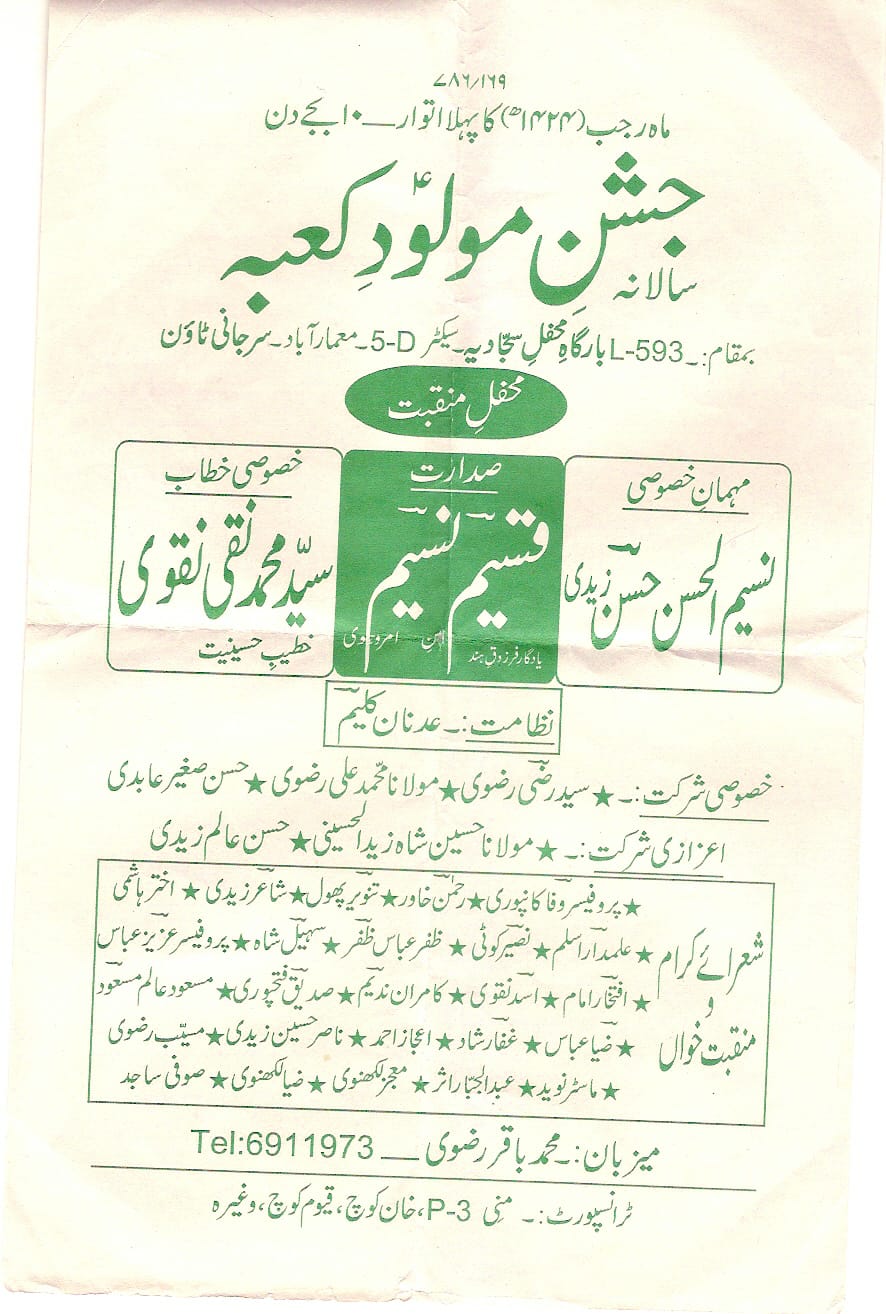 ۷۸۶/۱۶۹
ماہ رجب (۱۴۲۴ھ) کا پہلا اتوار ــ ۱۰ بجے دن
جشنِ مولودِ کعبہؑ
سالانہ
بمقام:۔ L-593 بارگاہِ محفلِ سجّادیہ۔ سیکٹر 5-D۔ معمار آباد۔ سرجانی ٹاؤن
محفلِ منقبت
مہمانِ خصوصی
نسیم الحسن حسن زیدی
صدارت
قسیم ابنِ نسیم امروہوی
یادگار فرزدقِ ہند
خصوصی خطاب
سیّد محمد نقی نقوی
خطیبِ حسینیت
نظامت:۔ عدنان کلیم
خصوصی شرکت:۔ ★ سید رضی رضوی ★ مولانا محمد علی رضوی ★ حسن صغیر عابدی
اعزازی شرکت:۔ ★ مولانا حسین شاہ زید الحسینی ★ حسن عالم زیدی
شعرائے کرام و منقبت خواں
★ پروفیسر وفا کانپوری ★ رحمٰن خاور ★ تنویر پھول ★ شاعر زیدی ★ اختر ہاشمی
★ علمدار اسلم ★ نصیر کوٹی ★ ظفر عباس ظفر ★ سہیل شاہ ★ پروفیسر عزیز عباس
★ افتخار امام ★ اسد نقوی ★ کامران ندیم ★ صدیق فتحپوری ★ مسعود عالم مسعود
★ ضیا عباس ★ غفار شاد ★ اعجاز احمد ★ ناصر حسین زیدی ★ مسیّب رضوی
★ ماسٹر نوید ★ عبدالجبّار اثر ★ معجز لکھنوی ★ ضیا لکھنوی ★ صوفی ساجد
میزبان:۔ محمد باقر رضوی ــــ Tel:6911973
ٹرانسپورٹ:۔ منی P-3، خان کوچ، قیوم کوچ، وغیرہ